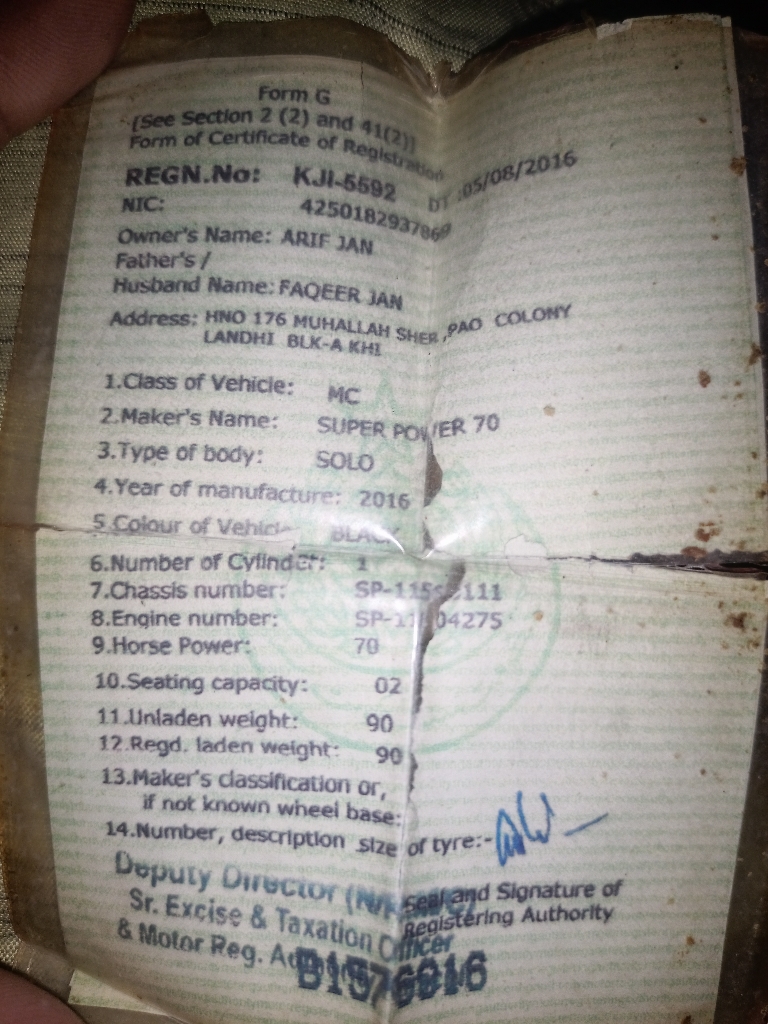 Form G
[See Section 2 (2) and 41(2)]
Form of Certificate of Registration
REGN.No: KJI-5592 DT :05/08/2016
NIC: 4250182937869
Owner's Name: ARIF JAN
Father's /
Husband Name: FAQEER JAN
Address: HNO 176 MUHALLAH SHER ,PAO COLONY
LANDHI BLK-A KHI
1.Class of Vehicle: MC
2.Maker's Name: SUPER POWER 70
3.Type of body: SOLO
4.Year of manufacture: 2016
5.Colour of Vehicle BLACK
6.Number of Cylinder: 1
7.Chassis number:
8.Engine number:
9.Horse Power: 70
10.Seating capacity: 02
11.Unladen weight: 90
12.Regd. laden weight: 90
13.Maker's classification or,
if not known wheel base:
14.Number, description size of tyre:-
Deputy Director
Seal and Signature of
Sr. Excise & Taxation Officer
Registering Authority
& Motor Reg.